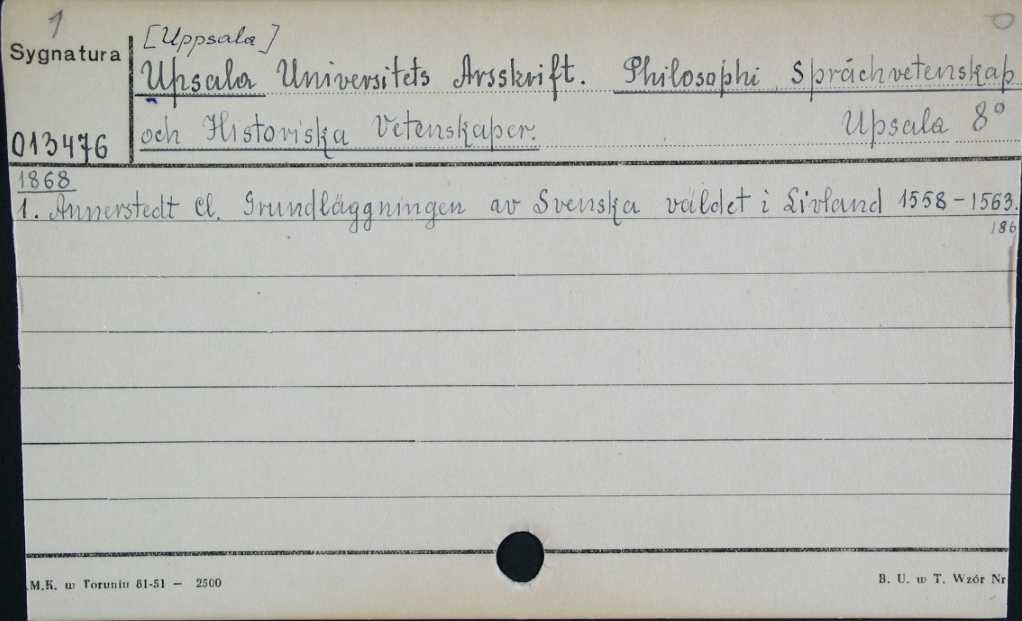 1
[Uppsala]
Sygnatura
Upsala Universitets Arsskrift. Philosophi Spráchvetenskap.
och Historiska Vetenskaper. Upsala 8°
013476
1868
1. Annerstedt Cl. Grundläggningen av Svenska väldet i Livland 1558-1563.
186
.M.K. w Toruniu 81-51 — 2500
B. U. w T. Wzór Nr